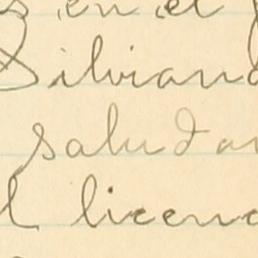 s, en, el
Silviano
saludan
l licenc